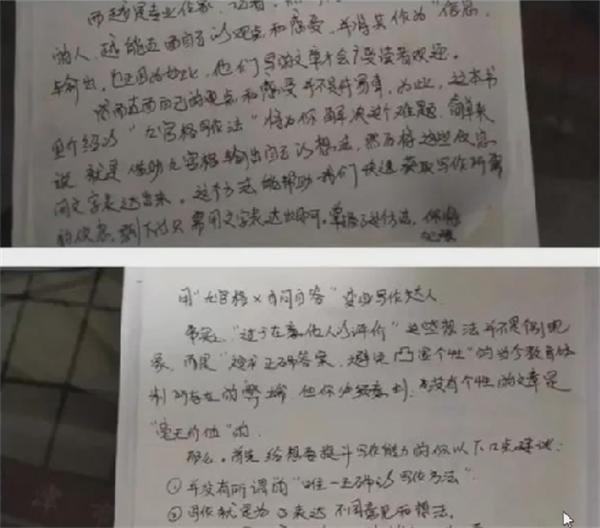 而越是专业作家、记者,
的人,越能直面自己的观点和感受,并将其作为“信息
与输出,也正因为如此,他们写的文章才会广受读者欢迎。
然而直面自己的观点和感受并不是件易事,为此,这本书
里介绍的“九宫格写作法”将为你解决这个难题.简单来
说 就是借助九宫格输出自己的想法,然后将这些信息
用文字表达出来。这个方法能帮助我们快速获取写作所需
的信息,剩下的只需用文字表达出来即可.掌握了这个方法,你将
用“九宫格×自问自答”变身写作达人
事实上,“过于在意他人的评价”这些想法并不是个别现
象,而是“搜求正确答案,避免凸显个性”的当今教育体
制所存在的弊端 但你必须意识到,没有个性的文章是
“毫无价值”的.
那么,首先给想要提升写作能力的你以下几点建议:
①并没有所谓的“唯一正确的写作方法”.
②写作就是为了表达不同意见和想法。